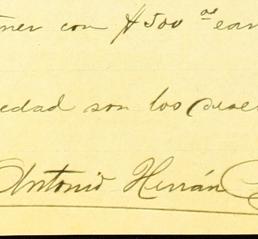 ner con $500 oo
edad son los
Antonio Herrán